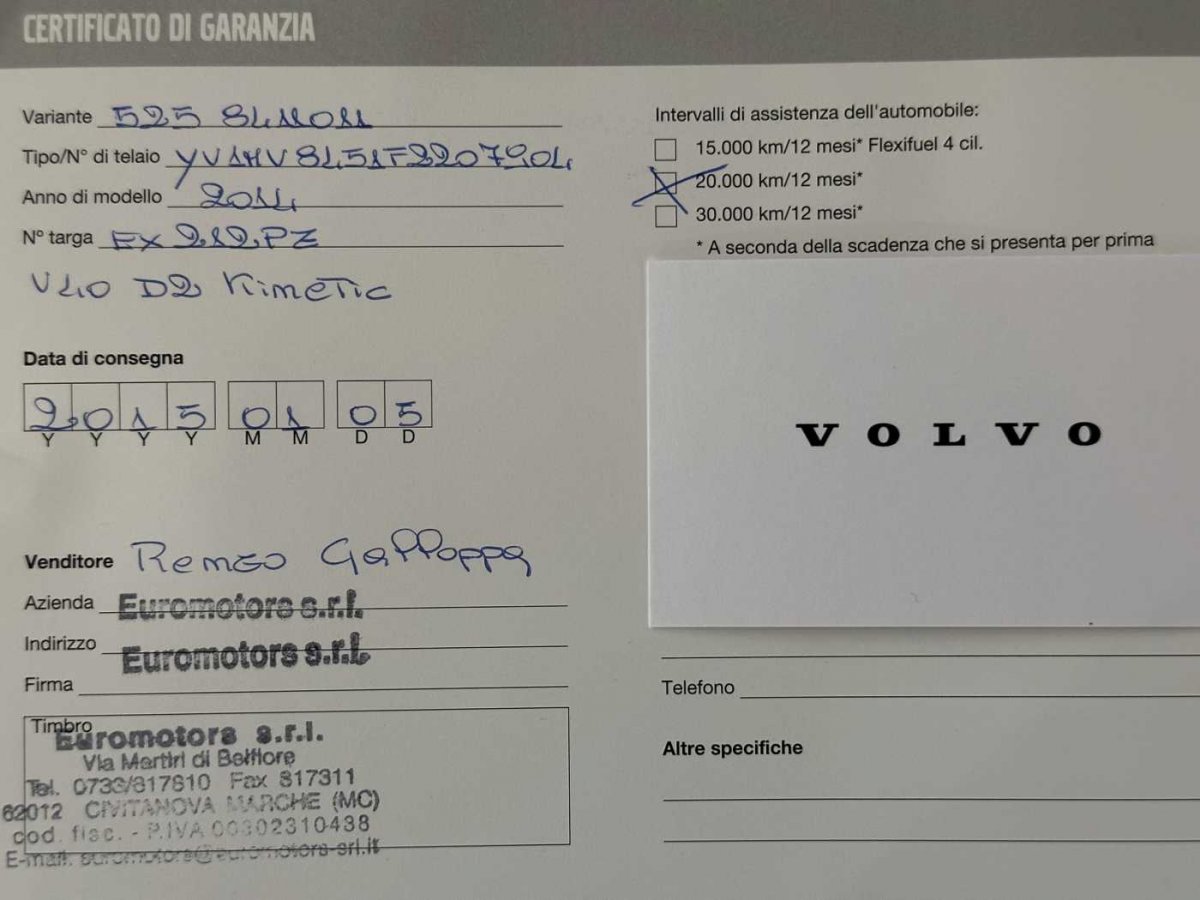 CERTIFICATO DI GARANZIA
Variante 525 8411011
Tipo/N° di telaio YV1MV8451F2207904
Anno di modello 2014
N° targa EX 212 PZ
V40 D2 Kinetic
Data di consegna
2015 01 05
Y Y Y Y M M D D
Venditore Renzo Galloppa
Azienda Euromotors s.r.l.
Indirizzo Euromotors s.r.l.
Firma
Timbro
Euromotors s.r.l.
Via Martiri di Belfiore
Tel. 0733/817810 Fax 817311
62012 CIVITANOVA MARCHE (MC)
cod. fisc. - P.IVA 00302310438
E-mail: euromotors@euromotors-srl.it
Intervalli di assistenza dell'automobile:
15.000 km/12 mesi* Flexifuel 4 cil.
20.000 km/12 mesi*
30.000 km/12 mesi*
* A seconda della scadenza che si presenta per prima
VOLVO
Telefono
Altre specifiche